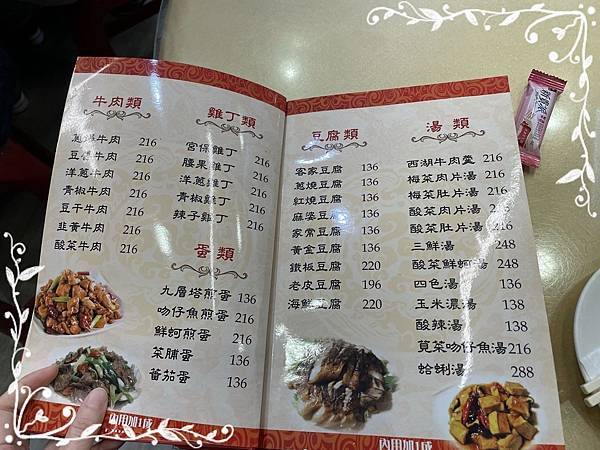 牛肉類
蔥爆牛肉 216
豆豉牛肉 216
洋蔥牛肉 216
青椒牛肉 216
豆干牛肉 216
韭黃牛肉 216
酸菜牛肉 216
雞丁類
宮保雞丁 216
腰果雞丁 216
洋蔥雞丁 216
青椒雞丁 216
辣子雞丁 216
蛋類
九層塔煎蛋 136
吻仔魚煎蛋 216
鮮蚵煎蛋 216
菜脯蛋 136
番茄蛋 136
內用加1成
豆腐類
客家豆腐 136
蔥燒豆腐 136
紅燒豆腐 136
麻婆豆腐 136
家常豆腐 136
黃金豆腐 136
鐵板豆腐 220
老皮豆腐 196
海鮮豆腐 220
湯類
西湖牛肉羹 216
梅菜肉片湯 216
梅菜肚片湯 216
酸菜肉片湯 216
酸菜肚片湯 216
三鮮湯 248
酸菜鮮蚵湯 248
四色湯 136
玉米濃湯 138
酸辣湯 138
莧菜吻仔魚湯 216
蛤蜊湯 288
內用加1成